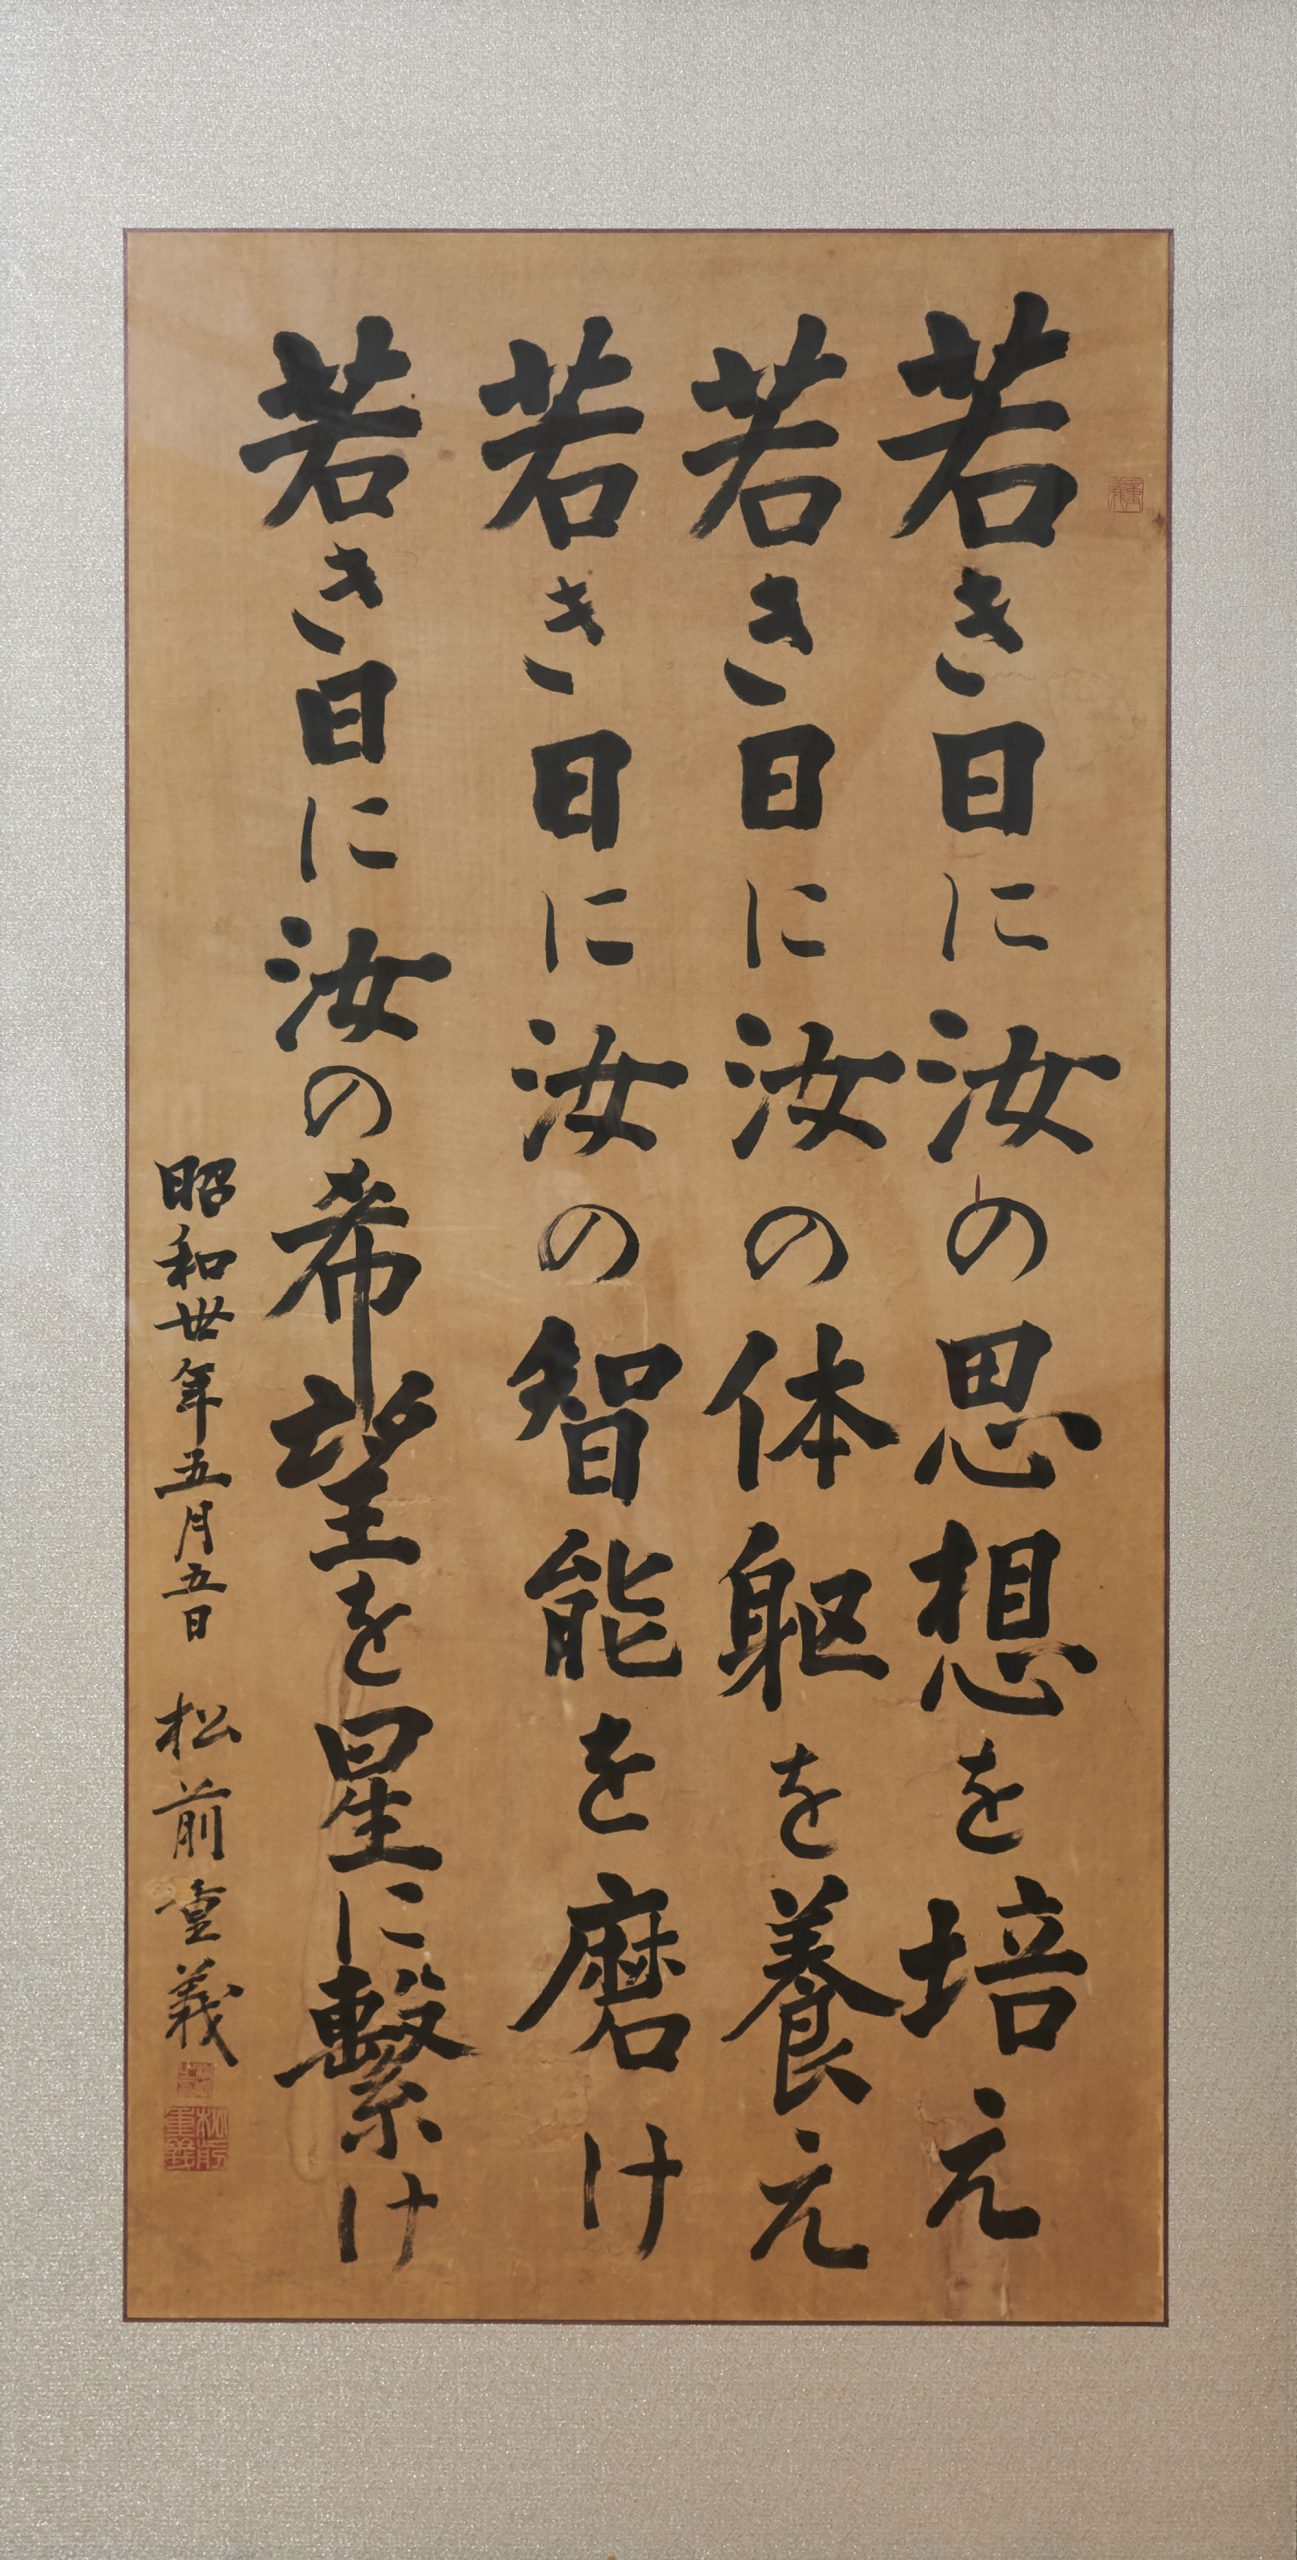 若き日に汝の思想を培え
若き日に汝の体躯を養え
若き日に汝の智能を磨け
若き日に汝の希望を星に繋け
昭和卅年五月五日 松前重義
重義
松前重義